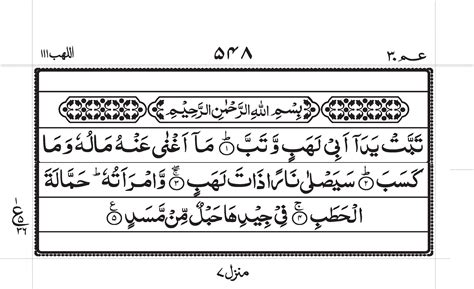 عم ۳۰ ۵۴۸ اللهب ۱۱۱
بِسْمِ اللهِ الرَّحْمٰنِ الرَّحِيْمِ
تَبَّتْ يَدَاۤ اَبِیْ لَهَبٍ وَّ تَبَّ ؕ﴿۱﴾ مَاۤ اَغْنٰی عَنْهُ مَالُهٗ وَ مَا
كَسَبَ ؕ﴿۲﴾ سَيَصْلٰی نَارًا ذَاتَ لَهَبٍ ۚۖ﴿۳﴾ وَّ امْرَاَتُهٗ ؕ حَمَّالَةَ
الْحَطَبِ ۚ﴿۴﴾ فِیْ جِيْدِهَا حَبْلٌ مِّنْ مَّسَدٍ ﴿۵﴾ ع
ع ۵ ۳۶
منزل ۷